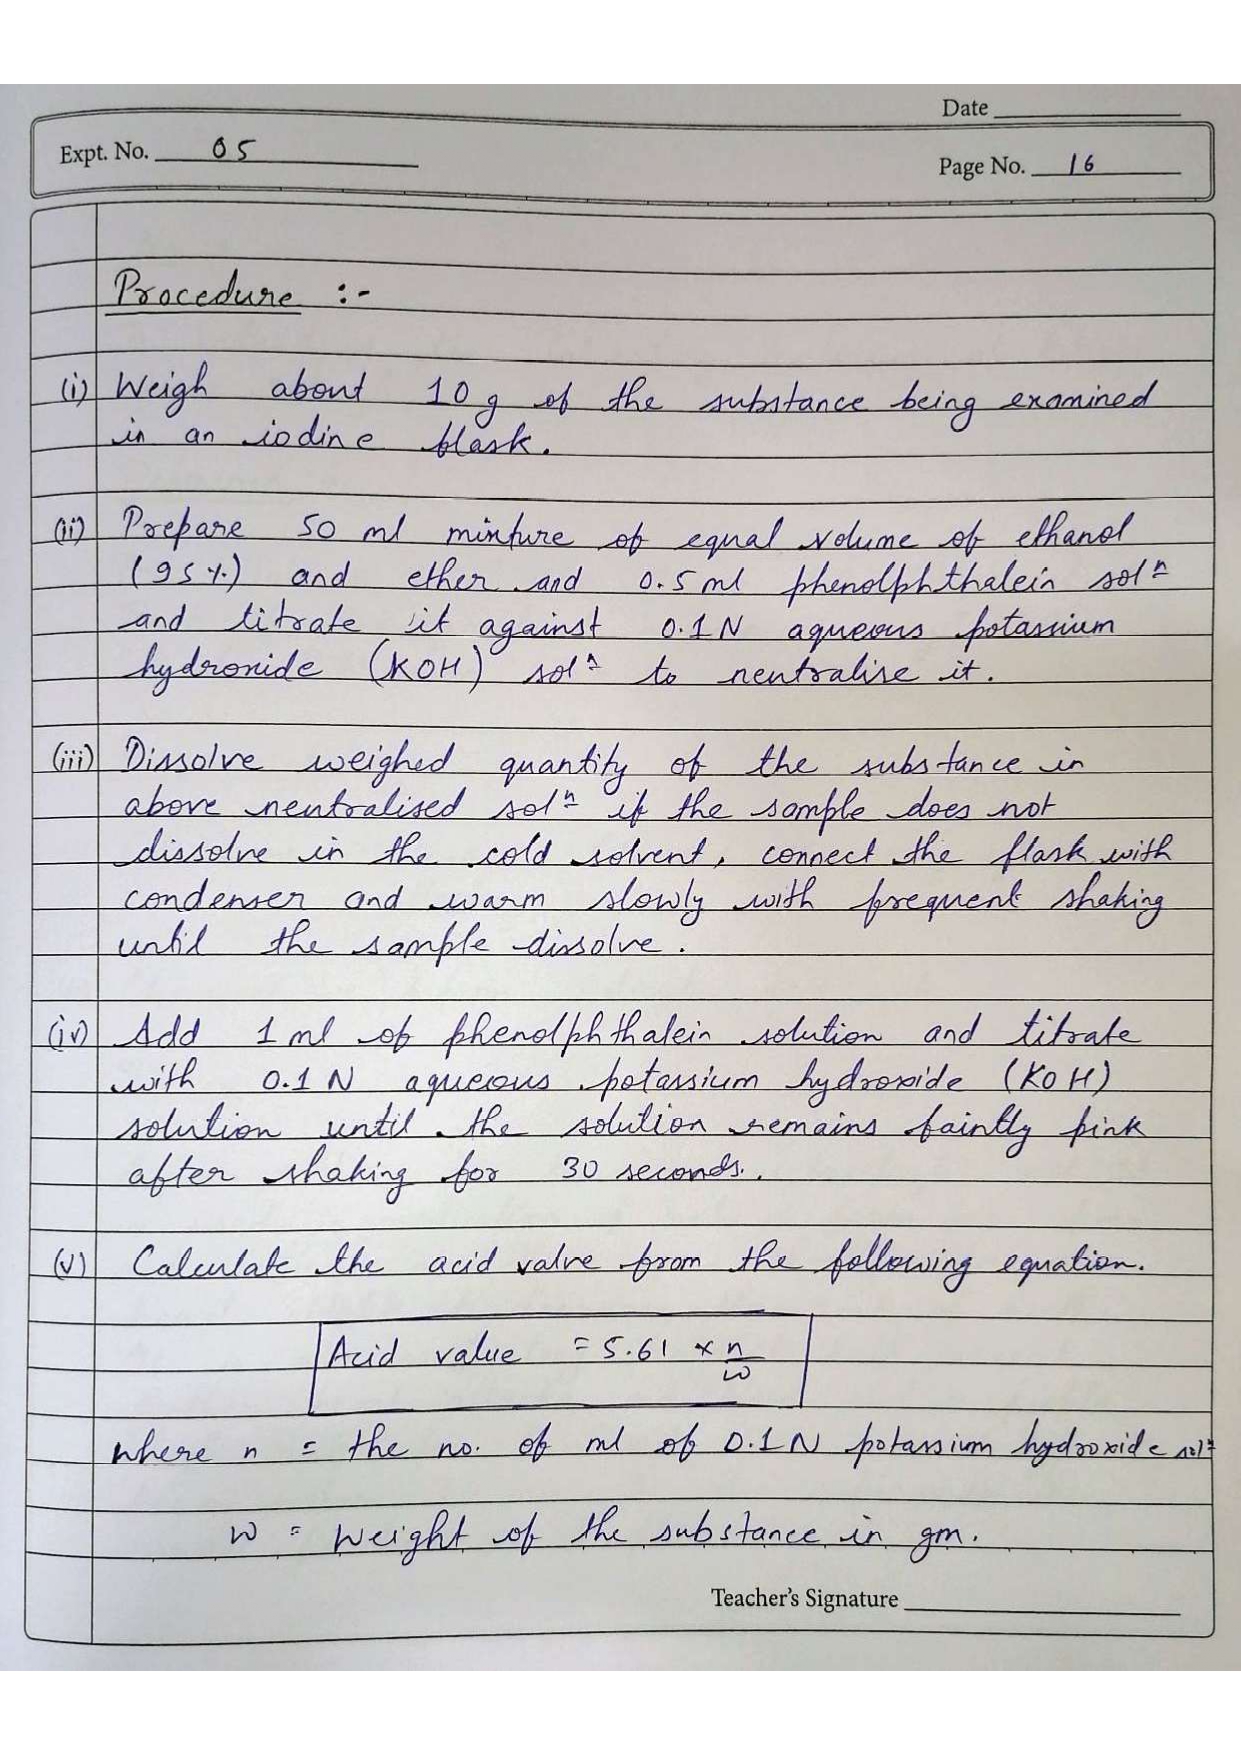 Date
Expt. No. 05
Page No. 16
Procedure :-
(i) Weigh about 10 g of the substance being examined
in an iodine flask.
(ii) Prepare 50 ml mixture of equal volume of ethanol
(95%) and ether and 0.5 ml phenolphthalein solⁿ
and titrate it against 0.1 N aqueous potassium
hydroxide (KOH) solⁿ to neutralise it.
(iii) Dissolve weighed quantity of the substance in
above neutralised solⁿ if the sample does not
dissolve in the cold solvent, connect the flask with
condenser and warm slowly with frequent shaking
until the sample dissolve.
(iv) Add 1 ml of phenolphthalein solution and titrate
with 0.1 N aqueous potassium hydroxide (KOH)
solution until the solution remains faintly pink
after shaking for 30 seconds.
(v) Calculate the acid value from the following equation.
Acid value = 5.61 × n/w
where n = the no. of ml of 0.1 N potassium hydroxide solⁿ
w = weight of the substance in gm.
Teacher's Signature